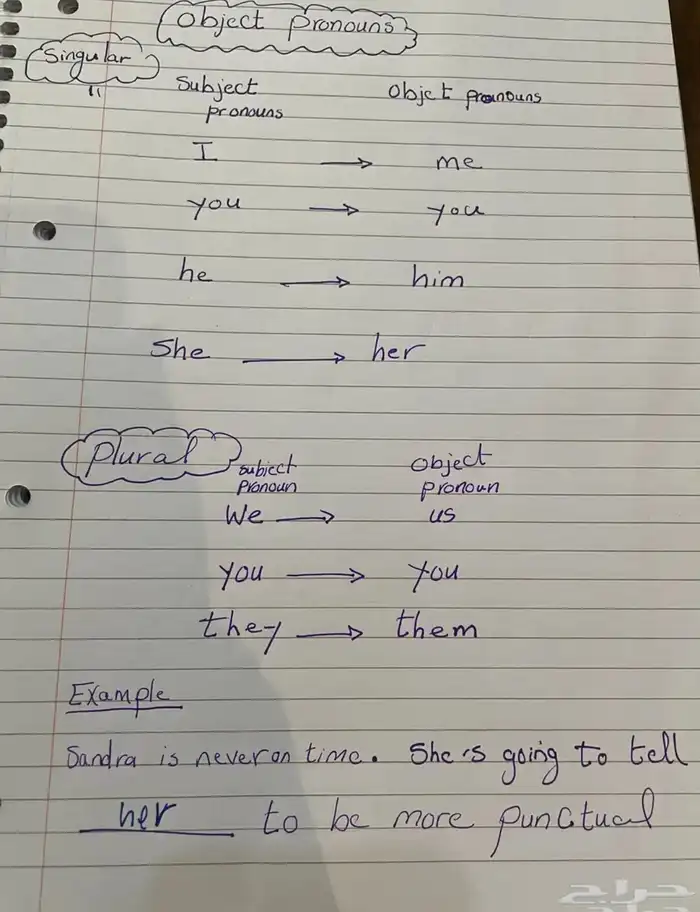 Object Pronouns
Singular
Subject pronouns
Objct pronouns
I → me
you → you
he → him
She → her
Plural
subject pronoun
object pronoun
We → us
you → you
they → them
Example
Sandra is never on time. She's going to tell
her to be more punctual
حراج